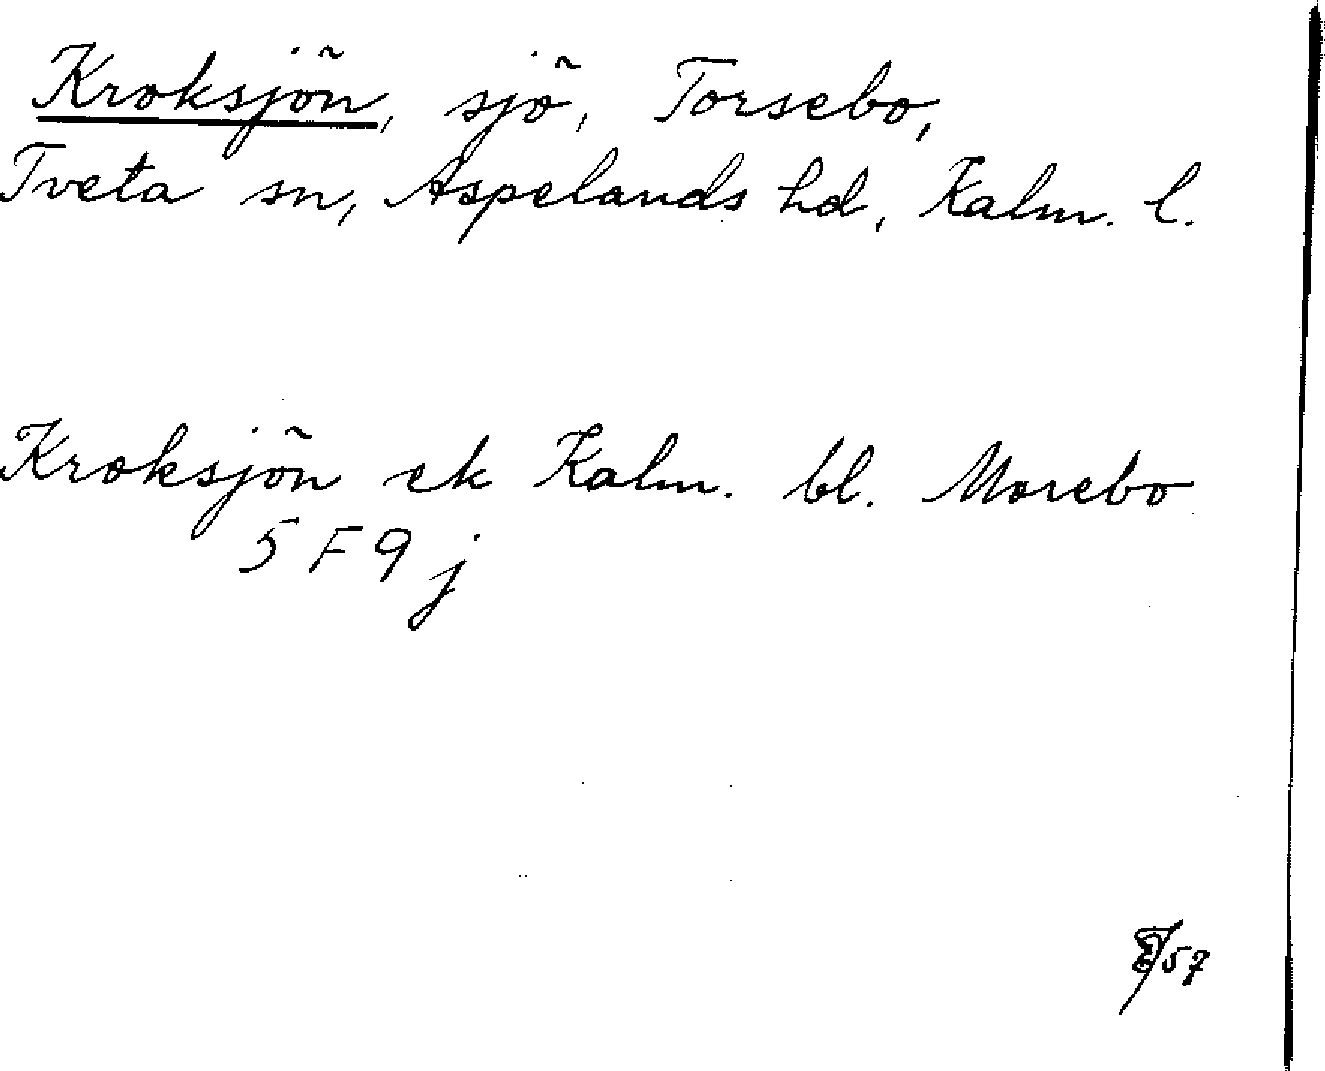 Kroksjön, sjö, Torsebo,
Tveta sn, Aspelands hd, Kalm. l.
Kroksjön ek Kalm. bl. Morebo
5 F 9 j
57